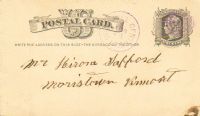 POSTAL CARD.
WRITE THE ADDRESS ON THIS SIDE - THE MESSAGE ON THE OTHER
Mr Hiram Safford
Morristown Vermont